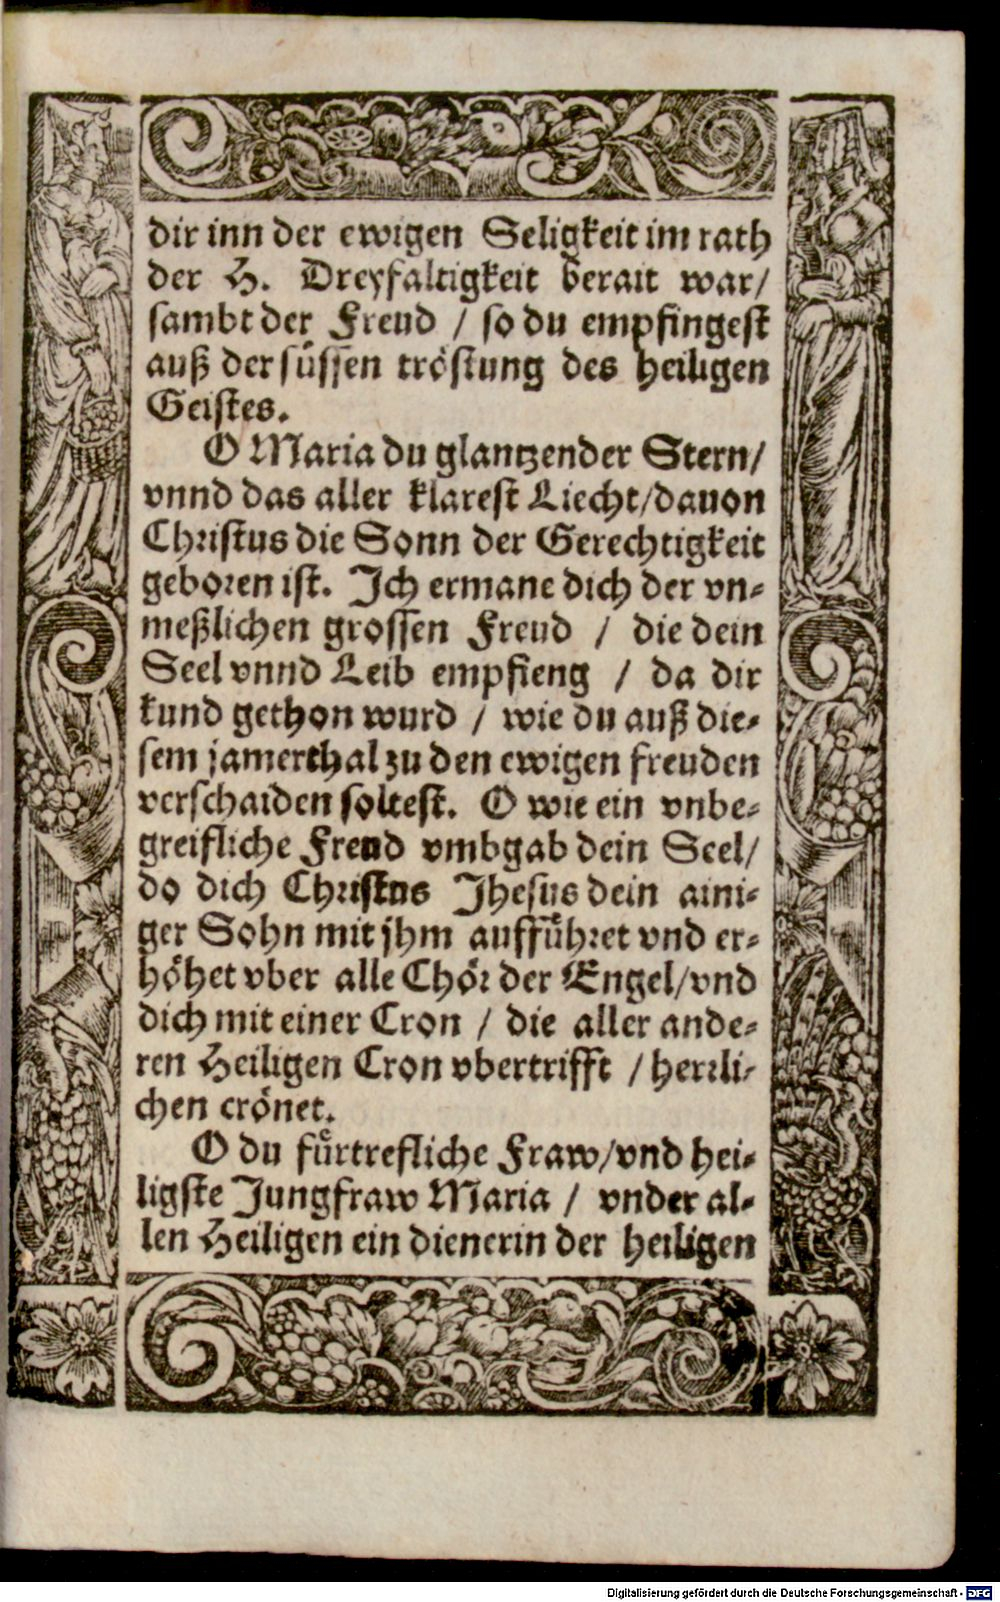 dir inn der ewigen Seligkeit im rath
der H. Dreyfaltigkeit berait war/
sambt der Freud / so du empfingest
auß der süssen tröstung des heiligen
Geistes.
O Maria du glantzender Stern/
vnnd das aller klarest Liecht/dauon
Christus die Sonn der Gerechtigkeit
geboren ist. Ich ermane dich der vn-
meßlichen grossen Freud / die dein
Seel vnnd Leib empfieng / da dir
kund gethon wurd / wie du auß die-
sem jamerthal zu den ewigen freuden
verschaiden soltest. O wie ein vnbe-
greifliche Freud vmbgab dein Seel/
do dich Christus Jhesus dein aini-
ger Sohn mit jhm auffůhret vnd er-
höhet vber alle Chör der Engel/vnd
dich mit einer Cron / die aller ande-
ren Heiligen Cron vbertrifft / herrli-
chen crönet.
O du fůrtrefliche Fraw/vnd hei-
ligste Jungfraw Maria / vnder al-
len Heiligen ein dienerin der heiligen
Digitalisierung gefördert durch die Deutsche Forschungsgemeinschaft - DFG